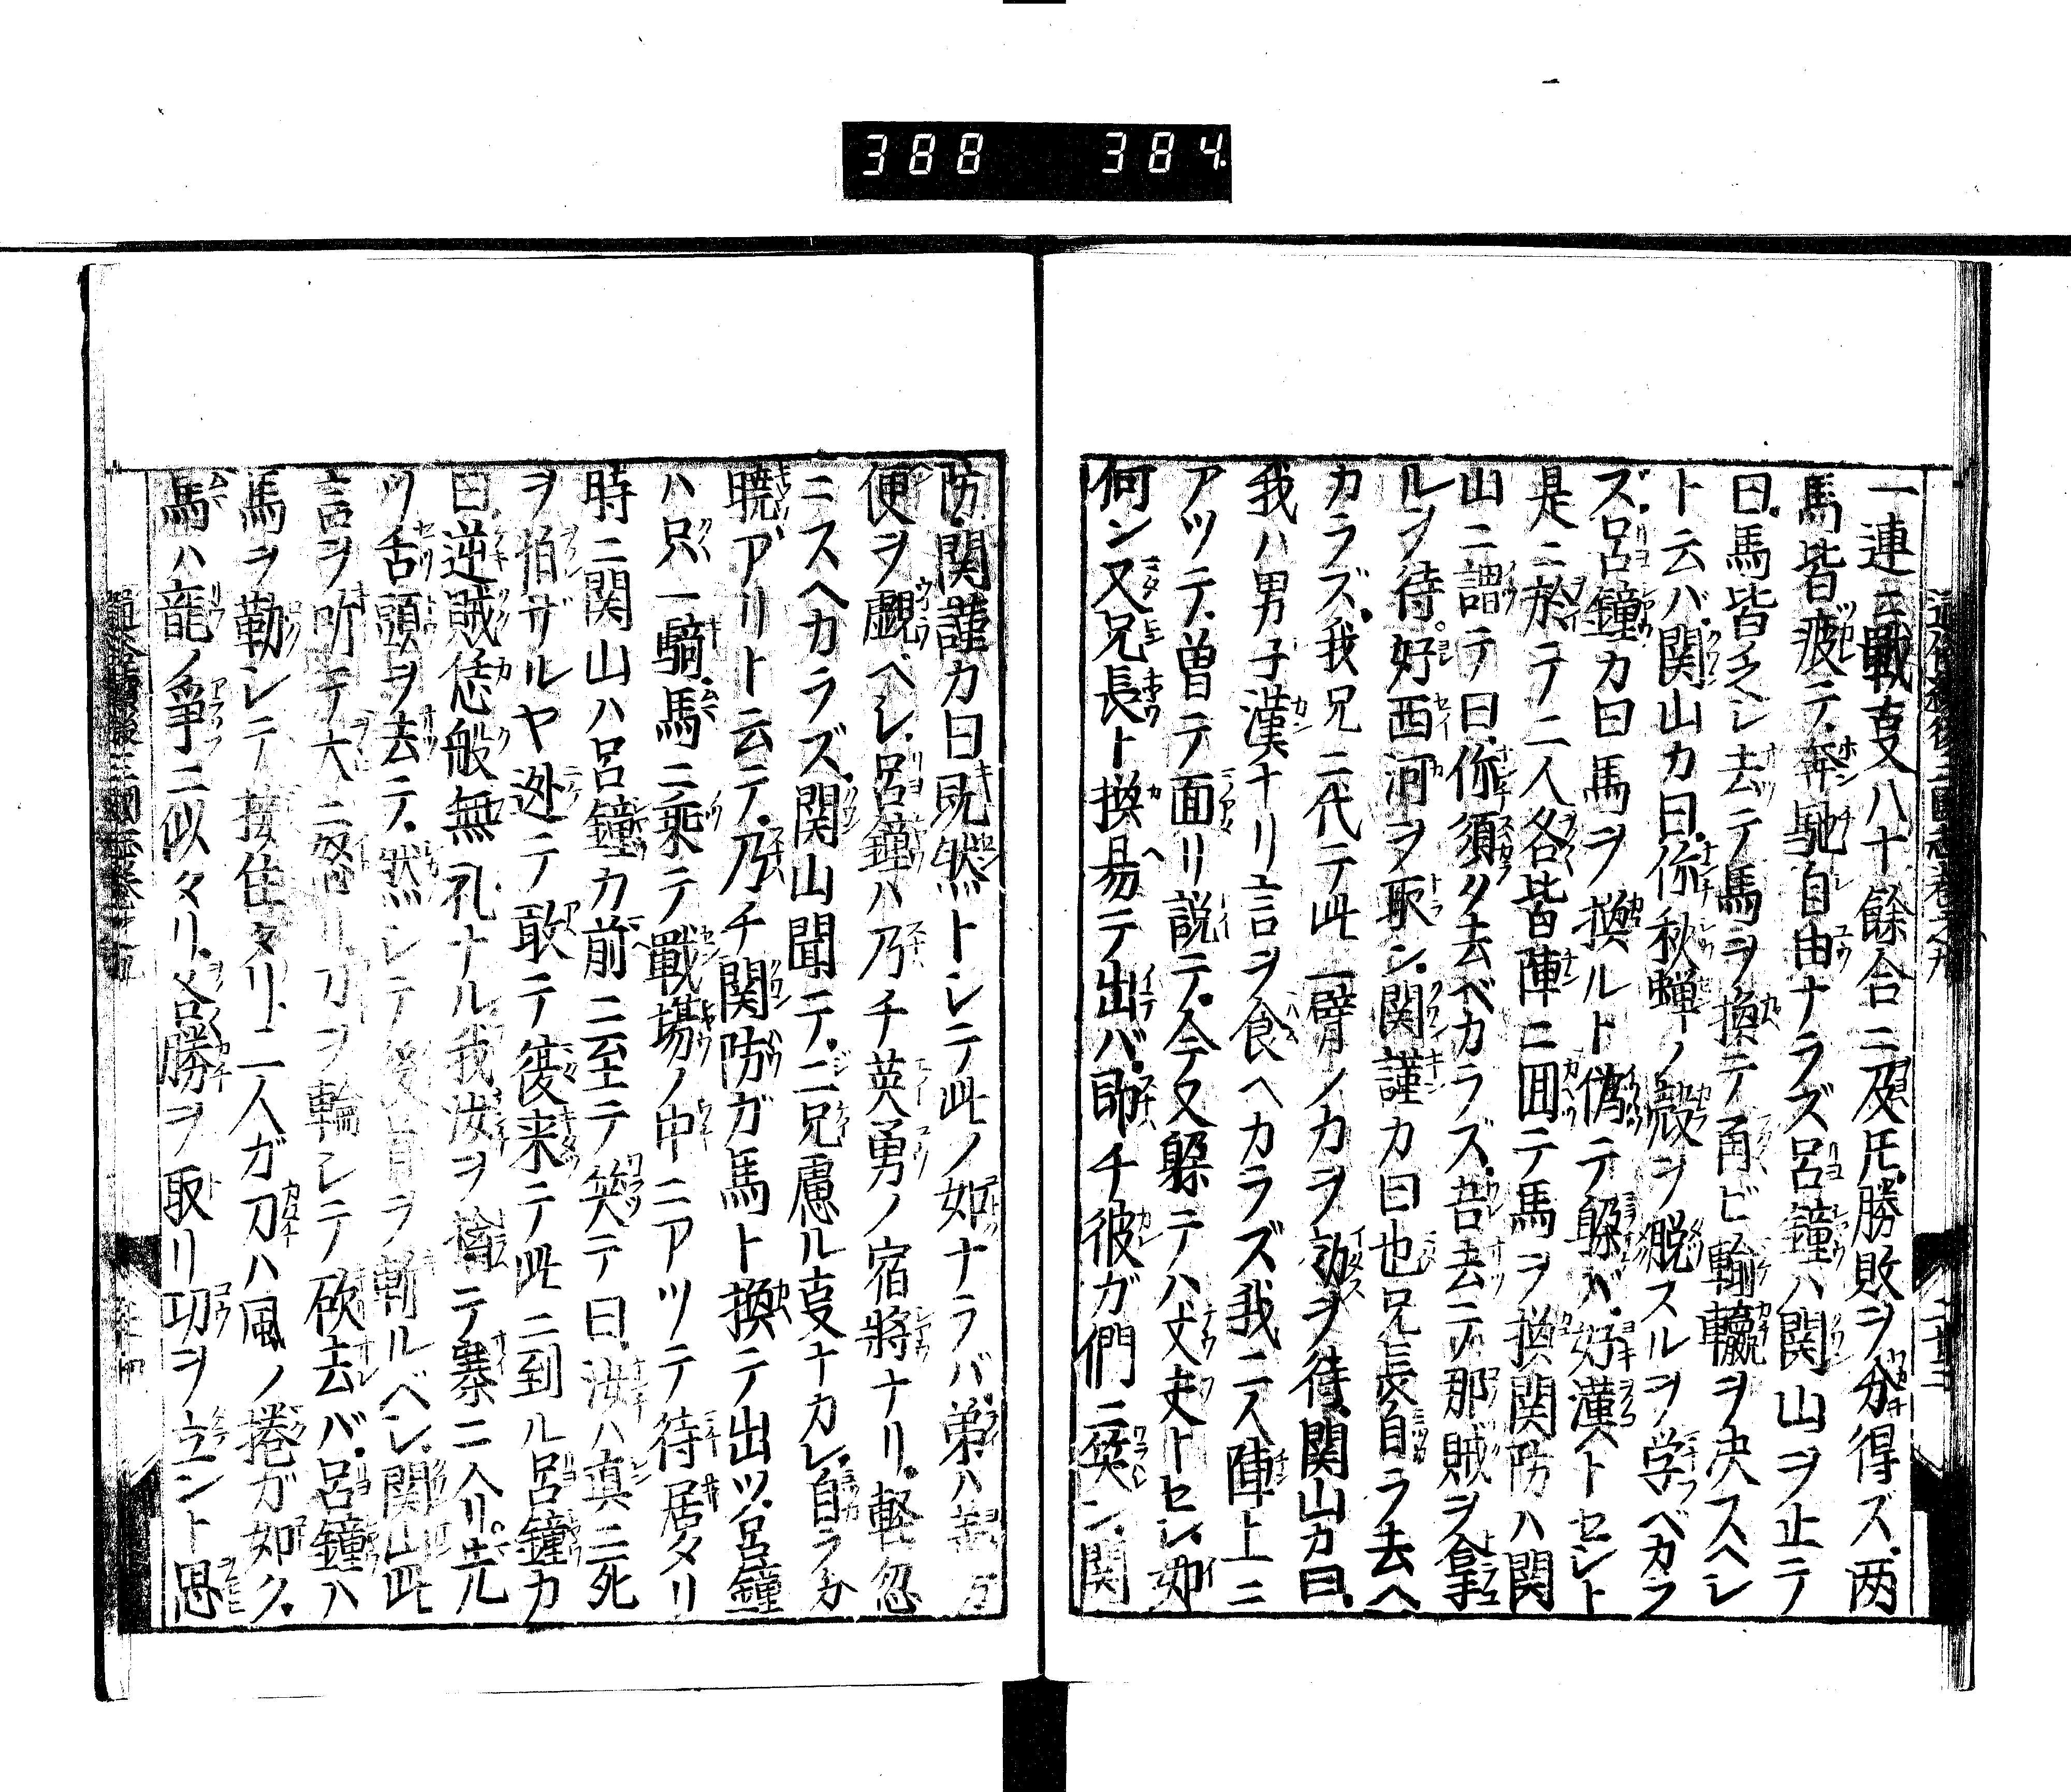 388 384
一連ニ戰叓八十餘合ニ及氏勝敗ヲ分得ズ両
馬皆疲テ奔馳自由ナラズ呂鐘ハ関山ヲ止テ
曰馬皆乏シ去テ馬ヲ換テ再ビ輸贏ヲ决スヘシ
ト云バ関山カ曰你秋蝉ノ殻ヲ脱スルヲ学ベカラ
ズ呂鐘カ曰馬ヲ換ルト偽テ躱バ好漢トセント
是ニ於テ二人各皆陣ニ囬テ馬ヲ換関防ハ関
山ニ謂テ曰你須ク去ベカラズ吾去テ那賊ヲ拿
ルヲ待好西河ヲ取ン関謹カ曰也兄長自ラ去ヘ
カラズ我兄ニ代テ此一臂ノ力ヲ効ヲ待関山カ曰
我ハ男子漢ナリ言ヲ食ヘカラズ我ニ入陣上ニ
アツテ曽テ面リ説テ今又躱テハ丈夫トセン如
何ン又兄長ト換易テ出バ即チ彼ガ們ニ笑ン関
防関謹カ曰既然トシテ此ノ如ナラバ弟ハ
便ヲ覷ベシ呂鐘ハ乃チ英勇ノ宿將ナリ軽忽
ニスヘカラズ関山聞テ二兄慮ル叓ナカレ自ラ分
曉アリト云テ乃チ関防ガ馬ト換テ出ツ呂鐘
ハ只一騎馬ニ乗テ戰塲ノ中ニアツテ待居タリ
時ニ関山ハ呂鐘カ前ニ至テ笑テ曰汝ハ真ニ死
ヲ怕ザルヤ迯テ敢テ復来テ此ニ到ル呂鐘カ
曰逆賊恁般無礼ナル我汝ヲ擒テ寨ニ入リ先
ツ舌頭ヲ去テ然シテ後首ヲ斬ルベシ関山此
言ヲ听テ大ニ怒リ刀ヲ輪シテ砍去バ呂鐘ハ
馬ヲ勒シテ接住タリ二人ガ刀ハ風ノ捲ガ如ク
馬ハ龍ノ爭ニ似タリ各勝ヲ取リ功ヲ立ント思